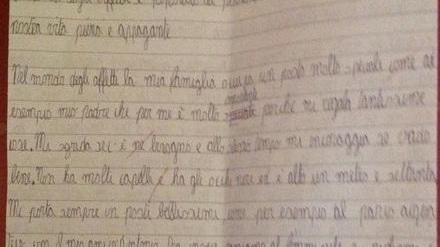 nostra vita piena e appagante
Nel mondo degli affetti la mia famiglia occupa un posto molto speciale come ad
esempio mio padre che per me è molto speciale perché mi regala tantissime
cose. Mi sgrida se c'è ne bisogno e allo stesso tempo mi incoraggia se vado
bene. Non ha molti capelli e ha gli occhi neri ed è alto un metro e settanta
Mi porta sempre in posti bellissimi come per esempio al parco
con il mio amico Antonio